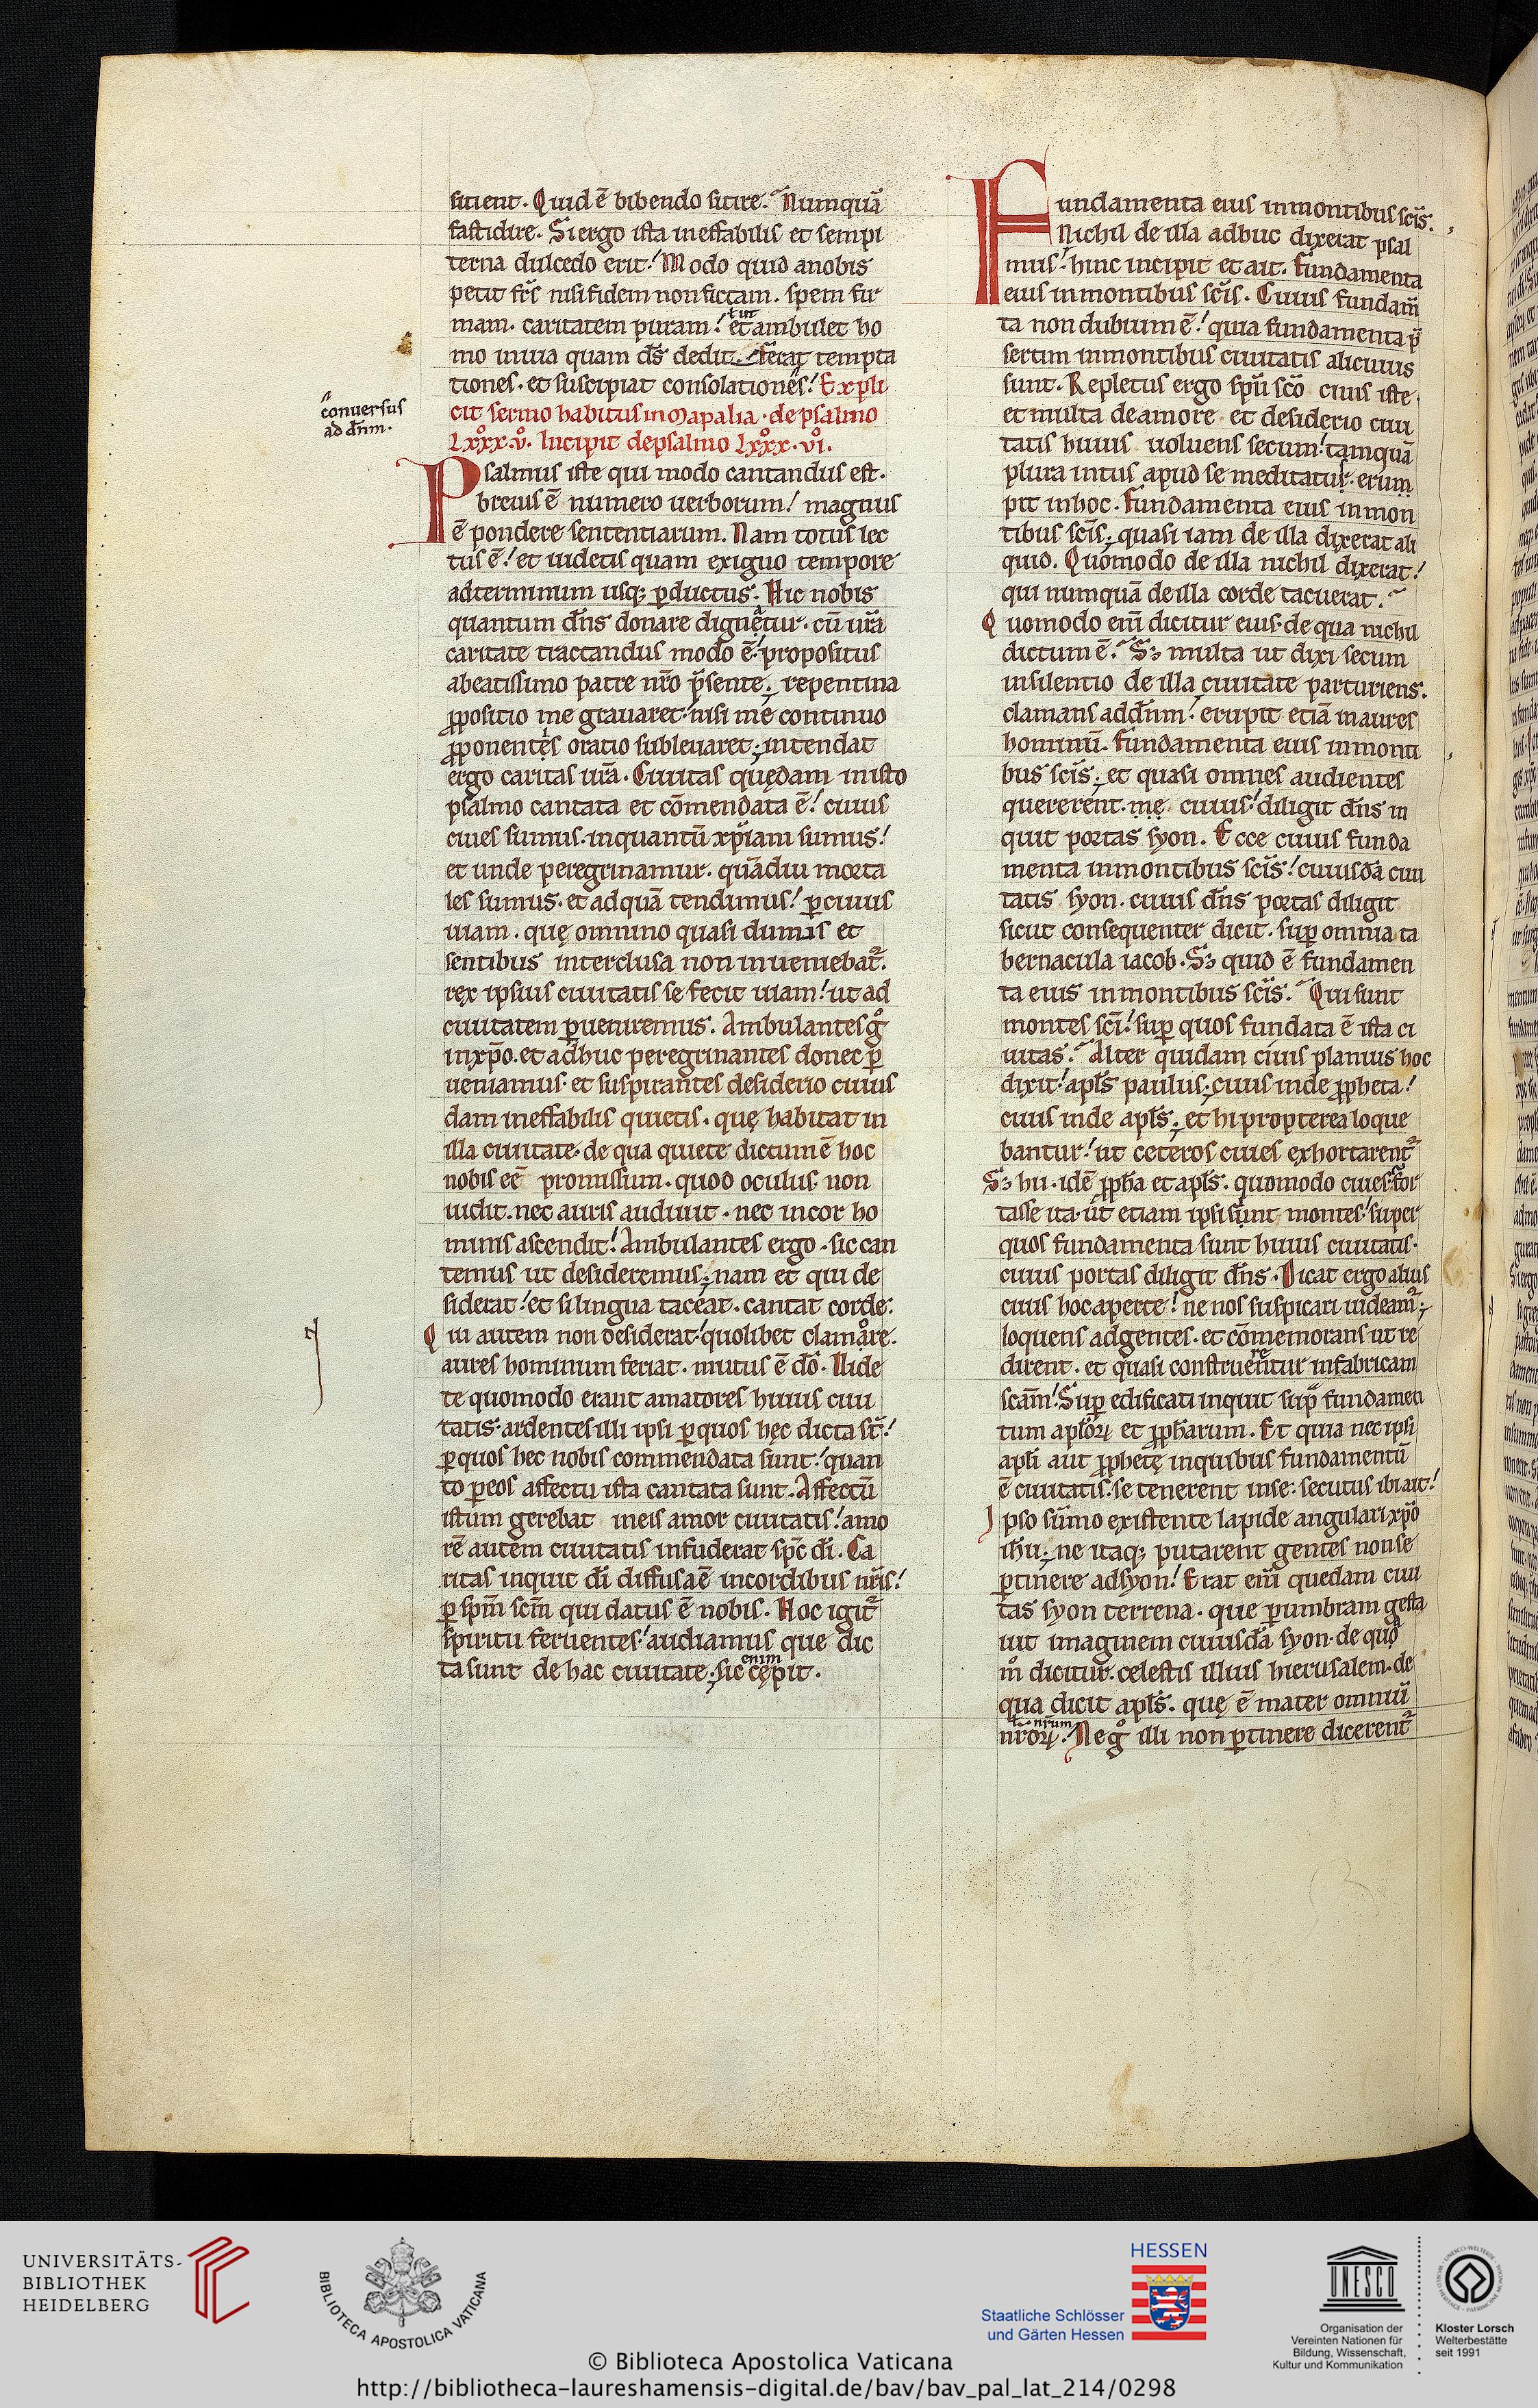 sitient. Quid ē bibendo sitire. Nunquā
fastidire. Si ergo ista ineffabilis et sempi
terna dulcedo erit! Modo quid anobis
petit fr̄s nisi fidem non fictam. spem fir
mam. caritatem puram! et ambulet ho
mo inuia quam dſ̄ dedit. ferat tempta
tiones. et suscipiat consolationes! Expli
cit sermo habitus in mapalia. de psalmo
Lxxx.v. Incipit de psalmo Lxxx.vi.
conuersus
ad dn̄m.
Psalmus iste qui modo cantandus est.
breuis ē numero uerborum! magnus
ē pondere sententiarum. Nam totus lec
tus ē! et uidetis quam exiguo tempore
ad terminum usq; ꝑductus. Hic nobis
quantum dn̄s donare dignetur. cū ur̄a
caritate tractandus modo ē! propositus
abeatissimo patre nr̄o p̄sente; repentina
ꝓpositio me grauaret. nisi me continuo
ꝓponentes oratio subleuaret; intendat
ergo caritas ur̄a. Ciuitas quędam in isto
psalmo cantata et cōmendata ē! cuius
ciues sumus. inquantū xp̄iani sumus!
et unde peregrinamur. quādiu morta
les sumus. et adquā tendimus! ꝑ cuius
uiam. quę omnino quasi dumis et
sentibus interclusa non inueniebat᷑.
rex ipsius ciuitatis se fecit uiam! ut ad
ciuitatem ꝑueniremus. Ambulantes gͦ
in xp̄o. et adhuc peregrinantes donec ꝑ
ueniamus. et suspirantes desiderio cuius
dam ineffabilis quietis. quę habitat in
illa ciuitate. de qua quiete dictum ē hoc
nobis eē promissum. quod oculus non
uidit. nec auris audiuit. nec in cor ho
minis ascendit! Ambulantes ergo. sic can
temus ut desideremus; nam et qui de
siderat! et si lingua taceat. cantat corde.
Qui autem non desiderat! quolibet clamore.
aures hominum feriat. mutus ē dō. Uide
te quomodo erant amatores huius ciui
tatis. ardentes illi ipsi ꝑ quos hęc dicta st̄!
ꝑ quos hec nobis commendata sunt! quan
to ꝑ eos affectu ista cantata sunt. Affectū
istum gerebat in eis amor ciuitatis! amo
rē autem ciuitatis infuderat sp̄c dī. Ca
ritas inquit dī diffusa ē in cordibus nr̄is!
ꝑ sp̄m sc̄m qui datus ē nobis. Hoc igit᷑
spiritu feruentes! audiamus que dic
enim
ta sunt de hac ciuitate; sic cępit.
Fundamenta eius inmontibus sc̄is.
Nichil de illa adhuc dixerat psal
mus! hinc incipit et ait. fundamenta
eius inmontibus sc̄is. Cuius fundam̄
ta non dubium ē! quia fundamenta p̄
sertim inmontibus ciuitatis alicuius
sunt. Repletus ergo sp̄u sc̄o ciuis iste.
et multa de amore et desiderio ciui
tatis huius uoluens secum! tamquā
plura intus apud se meditatus. erum
pit in hoc. fundamenta eius inmon
tibus sc̄is; quasi iam de illa dixerat ali
quid. Quomodo de illa nichil dixerat!
qui numquā de illa corde tacuerat.
Quomodo eni᷑ dicitur eius. de qua nichil
dictum ē. Sꝫ multa ut dixi secum
insilentio de illa ciuitate parturiens.
clamans ad dn̄m! erupit etiā in aures
hominū. fundamenta eius inmonti
bus sc̄is; et quasi omnes audientes
quererent. me cuius! diligit dn̄s in
quit portas syon. Ecce cuius funda
menta inmontibus sc̄is! cuiusdā ciui
tatis syon. cuius dn̄s portas diligit
sicut consequenter dicit. suꝑ omnia ta
bernacula iacob. Sꝫ quid ē fundamen
ta eius inmontibus sc̄is. Qui sunt
montes sc̄i! suꝑ quos fundata ē ista ci
uitas. Alter quidam ciuis planius hoc
dixit! apl̄s paulus; ciuis inde ꝓpheta!
ciuis inde apl̄s; et hi propterea loque
bantur! ut ceteros ciues exhortarent᷑
Sꝫ hii. idē ꝓph̄a et apl̄s. quomodo ciues. for
tasse ita. ut etiam ipsi sunt montes! super
quos fundamenta sunt huius ciuitatis.
cuius portas diligit dn̄s. Dicat ergo alius
ciuis hoc aperte! ne nos suspicari uideam᷑;
loquens ad gentes. et cōmemorans ut re
dirent. et quasi construerentur in fabricam
sc̄am! Suꝑ edificati inquit suꝑ fundamen
tum apl̄oꝝ et ꝓph̄arum. Et quia nec ipsi
apl̄i aut ꝓphetę in quibus fundamentū
ē ciuitatis. se tenerent in se. secutus ibi ait!
Ipso sūmo existente lapide angulari xp̄o
ih̄u; ne itaq; putarent gentes non se
ꝑtinere ad syon! Erat eni᷑ quedam ciui
tas syon terrena. que ꝑ umbram gesta
uit imaginem cuiusdā syon. de quo
mͦ dicitur. celestis illius hierusalem. de
qua dicit apl̄s. quę ē mater omniū
nr̄um
nr̄oꝝ! Ne gͦ illi non ꝑtinere dicerent᷑
UNIVERSITÄTS-
BIBLIOTHEK
HEIDELBERG
BIBLIOTECA APOSTOLICA VATICANA
HESSEN
Staatliche Schlösser
und Gärten Hessen
UNESCO
Organisation der
Vereinten Nationen für
Bildung, Wissenschaft,
Kultur und Kommunikation
Kloster Lorsch
Welterbestätte
seit 1991
© Biblioteca Apostolica Vaticana
http://bibliotheca-laureshamensis-digital.de/bav/bav_pal_lat_214/0298